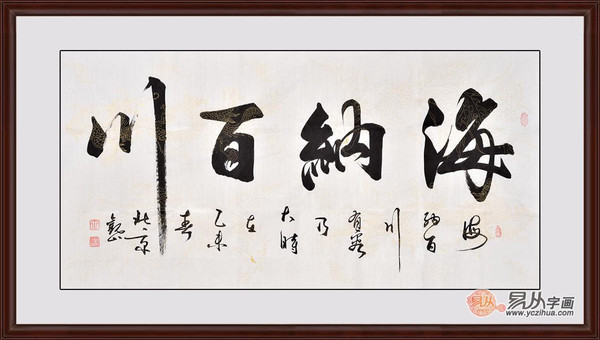 海納百川
海
納百
川
有容
乃
大時
在
乙未
春
北京
易从
易从字画
www.yczihua.com